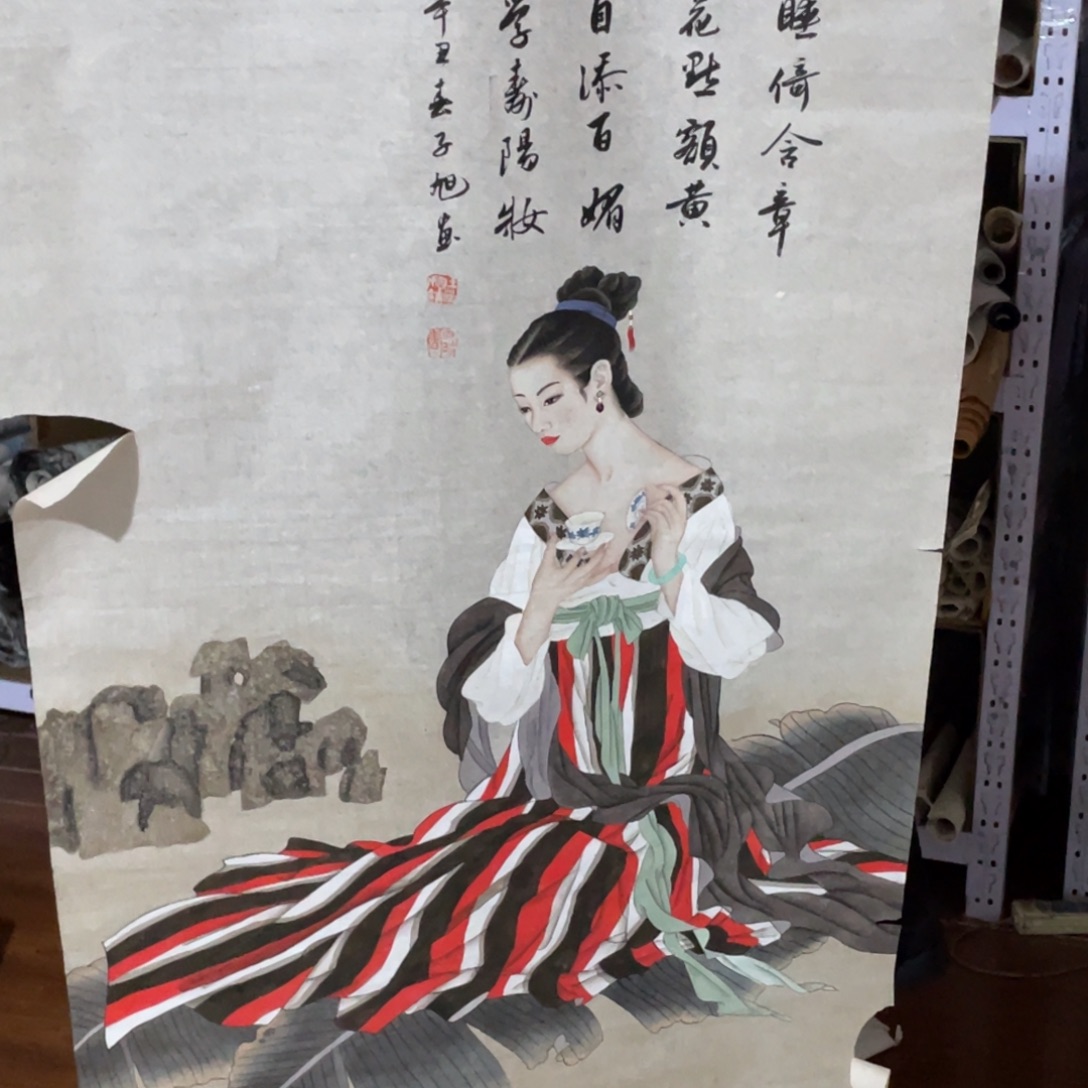 睡倚含章
花點額黄
自添百媚
学壽陽妝
辛丑春子旭画